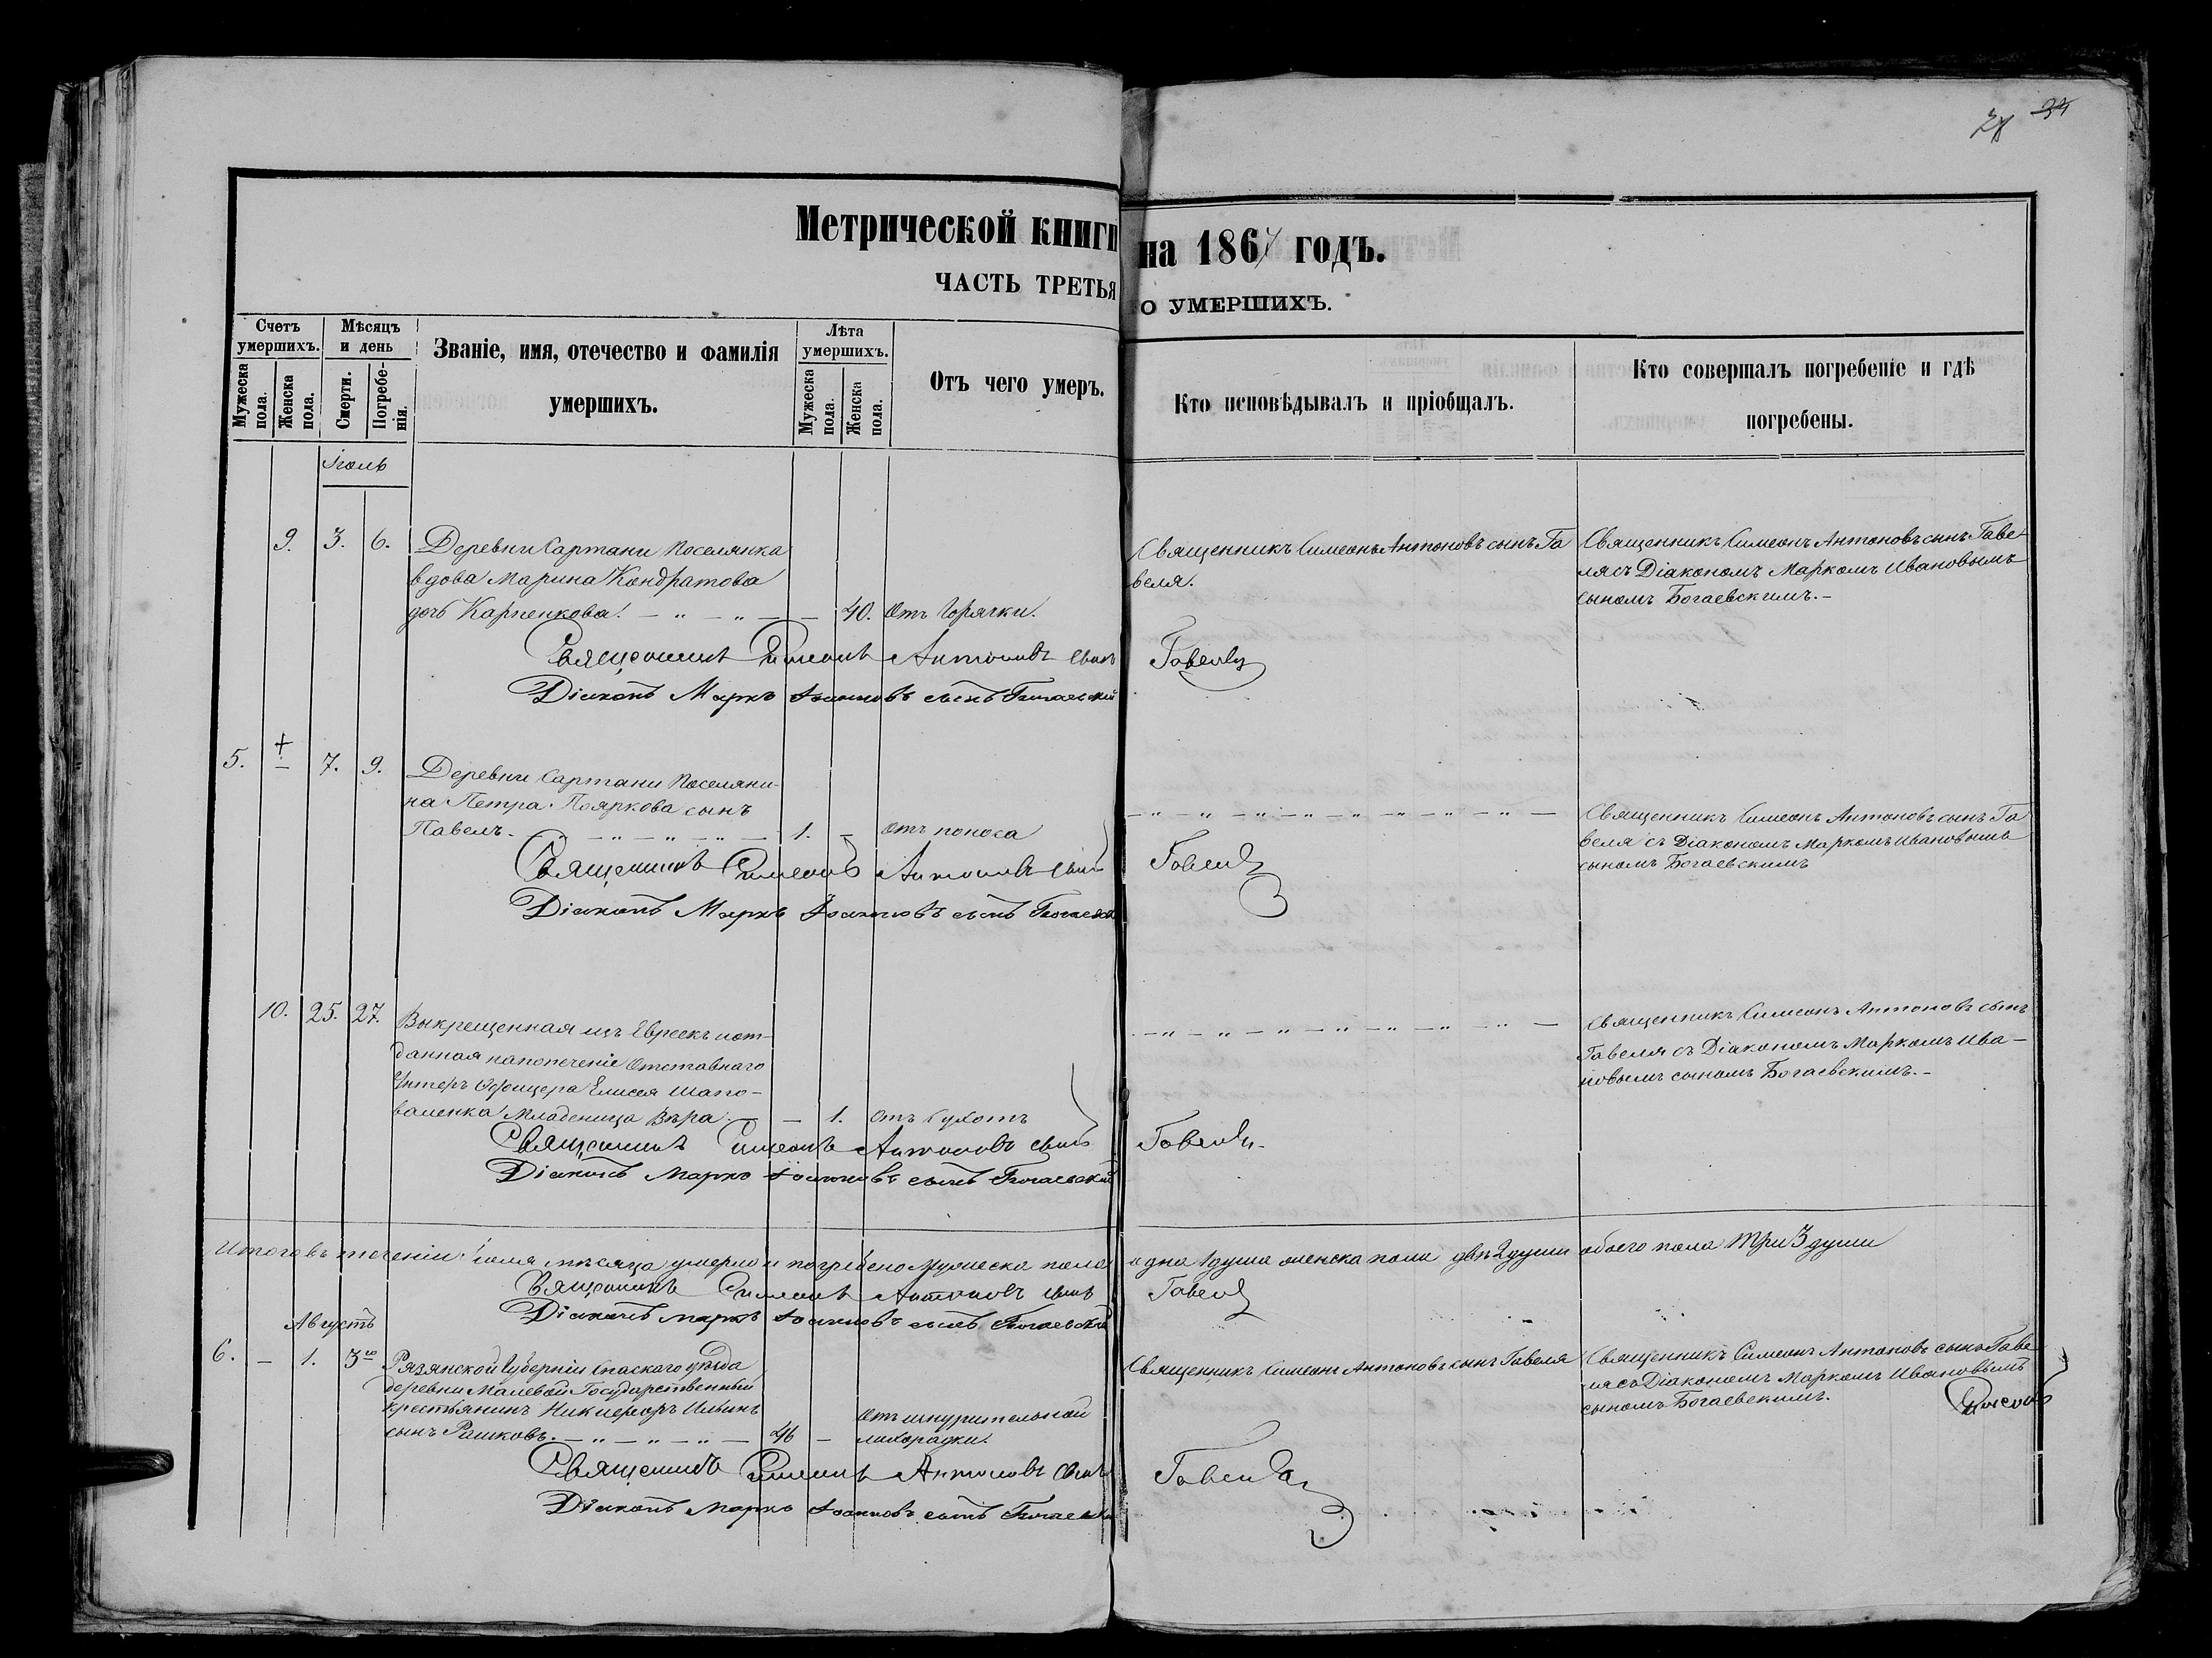 34
Метрической книги на 1867 годъ.
ЧАСТЬ ТРЕТЬЯ О УМЕРШИХЪ.
Счетъ умершихъ.
Мужеска пола.
Женска пола.
Мѣсяцъ и день
Смерти.
Погребенія.
Званіе, имя, отечество и фамилія
умершихъ.
Лѣта умершихъ.
Мужеска пола.
Женска пола.
Отъ чего умеръ.
Кто исповѣдывалъ и пріобщалъ.
Кто совершалъ погребеніе и гдѣ
погребены.
Іюль
9. 3. 6.
Деревни Сартани Поселянка
вдова Марина Кондратова
дочь Карпенкова. — " — " — — 40. Отъ Горячки.
Священникъ Симеонъ Антоновъ сынъ Га
веля.
Священникъ Симеонъ Антоновъ сынъ Гаве-
ля съ Діакономъ Маркомъ Ивановымъ
сыномъ Богаевскимъ. -
Священникъ Симеонъ Антоновъ сынъ Гавеля
Діаконъ Марко Іоанновъ сынъ Богаевскій
5. — 7. 9.
Деревни Сартани Поселяни-
на Петра Пояркова сынъ
Павелъ. — " — " — " — 1. — Отъ поноса
Священникъ Симеонъ Антоновъ сынъ Га
веля съ Діакономъ Маркомъ Ивановымъ
сыномъ Богаевскимъ
Священникъ Симеонъ Антоновъ сынъ Гавеля
Діаконъ Марко Іоанновъ сынъ Богаевск
10. 25. 27.
Выкрещенная изъ Евреекъ и от-
данная на попеченіе Отставнаго
Унтеръ Офицера Елисея Шапо-
валенка Младеница Вѣра. — — 1. Отъ сухотъ
Священникъ Симеонъ Антоновъ сынъ
Гавеля съ Діакономъ Маркомъ Ива-
новымъ сыномъ Богаевскимъ. -
Священникъ Симеонъ Антоновъ сынъ Гавеля.
Діаконъ Марко Іоанновъ сынъ Богаевскій
Итого въ теченіи Іюля мѣсяца умерло и погребено мужеска пола одна 1 душа женска пола двѣ 2 души обоего пола три 3 души
Священникъ Симеонъ Антоновъ сынъ Гавеля
Діаконъ Марко Іоанновъ сынъ Богаевскій
Августъ
6. — 1. 3го
Рязянской Губерніи Спаскаго уѣзда
деревни Малевой Государственный
крестьянинъ Никифоръ Ильинъ
сынъ Рашковъ. — " — " — " — 46 —
Отъ изнурительной
лихорадки.
Священникъ Симеонъ Антоновъ сынъ Гавеля
Священникъ Симеонъ Антоновъ сынъ Гаве
ля съ Діакономъ Маркомъ Ивановымъ
сыномъ Богаевскимъ.
Священникъ Симеонъ Антоновъ сынъ Гавеля
Діаконъ Марко Іоанновъ сынъ Богаевск